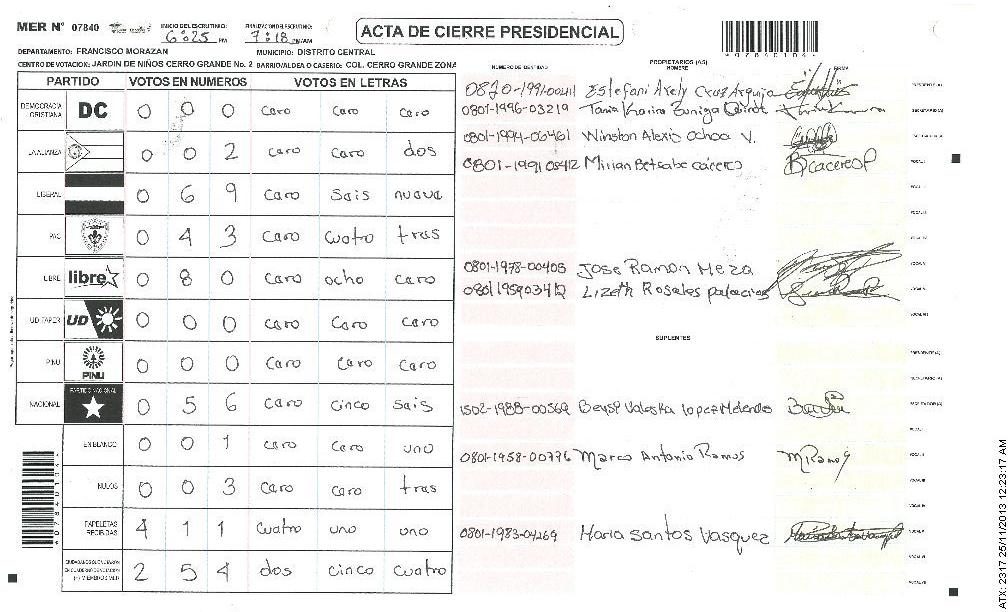 MER N° 07840
INICIO DEL ESCRUTINIO: 6:25 PM
FINALIZACION DEL ESCRUTINIO: 7:18 PM/AM
ACTA DE CIERRE PRESIDENCIAL
DEPARTAMENTO: FRANCISCO MORAZAN MUNICIPIO: DISTRITO CENTRAL
CENTRO DE VOTACION: JARDIN DE NIÑOS CERRO GRANDE No. 2 BARRIO/ALDEA O CASERIO: COL. CERRO GRANDE ZONA
PARTIDO VOTOS EN NUMEROS VOTOS EN LETRAS
DEMOCRACIA CRISTIANA DC 0 0 0 caro caro caro
LA ALIANZA 0 0 2 caro caro dos
LIBERAL 0 6 9 caro sais nuava
PAC 0 4 3 caro cuatro tras
LIBRE libre 0 8 0 caro ocho caro
UD FAPER UD 0 0 0 caro caro caro
PINU PINU 0 0 0 caro caro caro
NACIONAL PARTIDO NACIONAL 0 5 6 caro cinco sais
EN BLANCO 0 0 1 caro caro uno
NULOS 0 0 3 caro caro tras
PAPELETAS RECIBIDAS 4 1 1 cuatro uno uno
2 5 4 dos cinco cuatro
NUMERO DE IDENTIDAD PROPIETARIOS (AS) NOMBRE FIRMA
Estefani Arely Cruz Arquija PRESIDENTE(A)
0801-1996-03219 Tania Karina Zuniga SECRETARIO(A)
0801-1994-06461 Winston Alexis Ochoa V.
0801-1991 05412 Mirian Betsabe cáceres BcaceresP
0801-1978-00405 Jose Ramon Meza
0801195903412 Lizeth Rosales palacios
SUPLENTES
PRESIDENTE(A)
SECRETARIO(A)
1502-1988-00569 Valeska Lopez
0801-1958-00776 Marco Antonio Ramos MRamos
0801-1983-04269 Maria Santos Vasquez
*07840104*
ATX: 2317 25/11/2013 12:23:17 AM